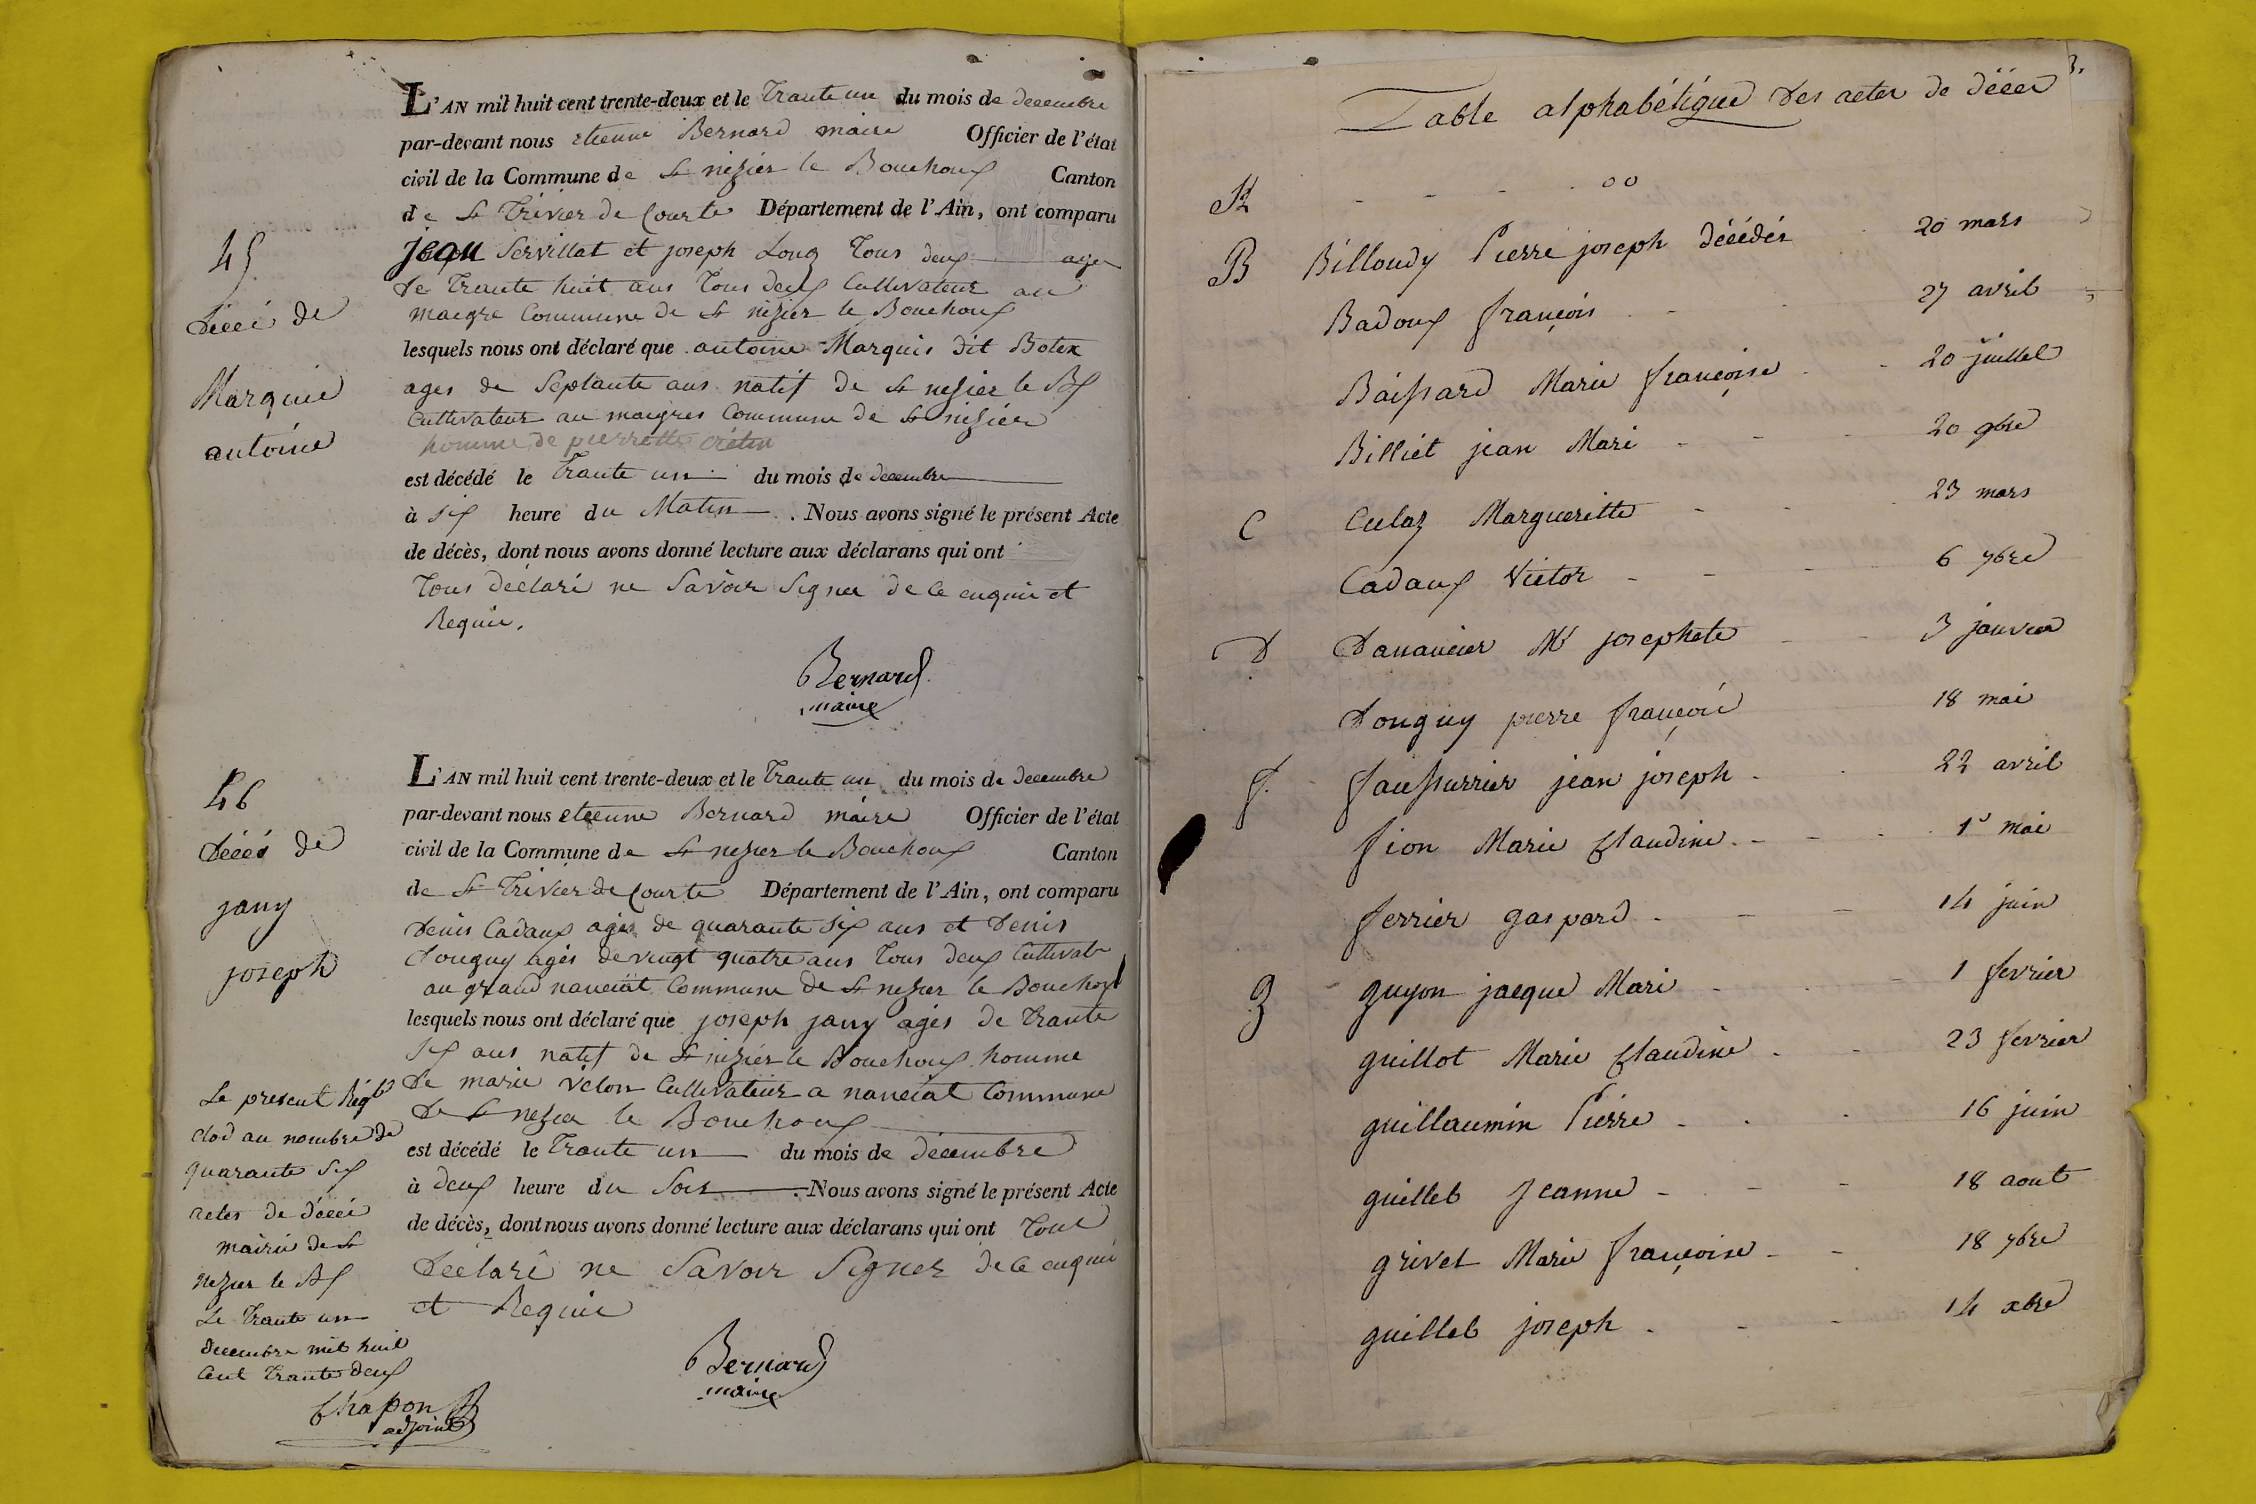 L'AN mil huit cent trente-deux et le Trante un du mois de decembre
par-devant nous etienne Bernard maire Officier de l'état
civil de la Commune de St nizier le Bouchoux Canton
de St Trivier de Courte Département de l'Ain, ont comparu
jean Servillat et joseph Long Tous deux agés
de Trante huit ans Tous deux Cultivateur au
maigre Commune de St nizier le Bouchoux
lesquels nous ont déclaré que antoine Marquis dit Botex
ages de Septante ans natif de St nesier le Bx
Cultivateur au maigres Commune de St nisier
homme de pierrette crétin
est décédé le Trante un du mois de decembre
à six heure du Matin . Nous avons signé le présent Acte
de décès, dont nous avons donné lecture aux déclarans qui ont
Tous déclaré ne Savoir Signer de ce enquis et
Requis.
Bernard
maire
45
Décé de
Marquis
antoine
L'AN mil huit cent trente-deux et le Trante un du mois de decembre
par-devant nous etienne Bernard maire Officier de l'état
civil de la Commune de St nezier le Bouchoux Canton
de St Trivier de Courte Département de l'Ain, ont comparu
Denis Cadaux agés de quarante Six ans et Denis
Donguy agés de vingt quatre ans Tous deux Cultivatr
au grand nanciat Commune de St nezier le Bouchoux
lesquels nous ont déclaré que joseph jany agés de Trante
Six ans natif de St nizier le Bouchoux homme
de marie vélon Cultivateur a nanciat Commune
de St nezier le Bouchoux
est décédé le Trante un du mois de décembre
à deux heure du Soir . Nous avons signé le présent Acte
de décès, dont nous avons donné lecture aux déclarans qui ont Tous
Déclaré ne Savoir Signer de ce enquis
et Requis
Bernard
maire
46
Décés de
jany
joseph
Le present Régtre
clod au nombre de
quarante Six
actes de décés
mairie de St
nezier le Bx
Le Trante un
decembre mil huit
Cent Trante deux
Chapon
adjoint
3.
Table alphabétique des actes de décès
A - - - 00
B Billoudy Pierre joseph décédés 20 mars
Badoux françois - - 27 avril
Baissard Marie françoise - - 20 juillet
Billiet jean Mari - - - 20 9bre
C Culaz Margueritte - - - 23 mars
Cadaux Victor - - - 6 7bre
D Danancier Me josephete - - 3 janvier
Donguy pierre françois 18 mai
f. faussurrier jean joseph - . 22 avril
fion Marie Claudine - - - 1r mai
ferrier gaspard - - - 14 juin
g guyon jacque Mari - - - 1 fevrier
guillot Marie Claudine - - 23 fevrier
guillaumin Pierre - - - 16 juin
guilleb Jeanne - - - 18 aout
grivet Marie françoise - - 18 7bre
guilleb joseph - - - 14 xbre